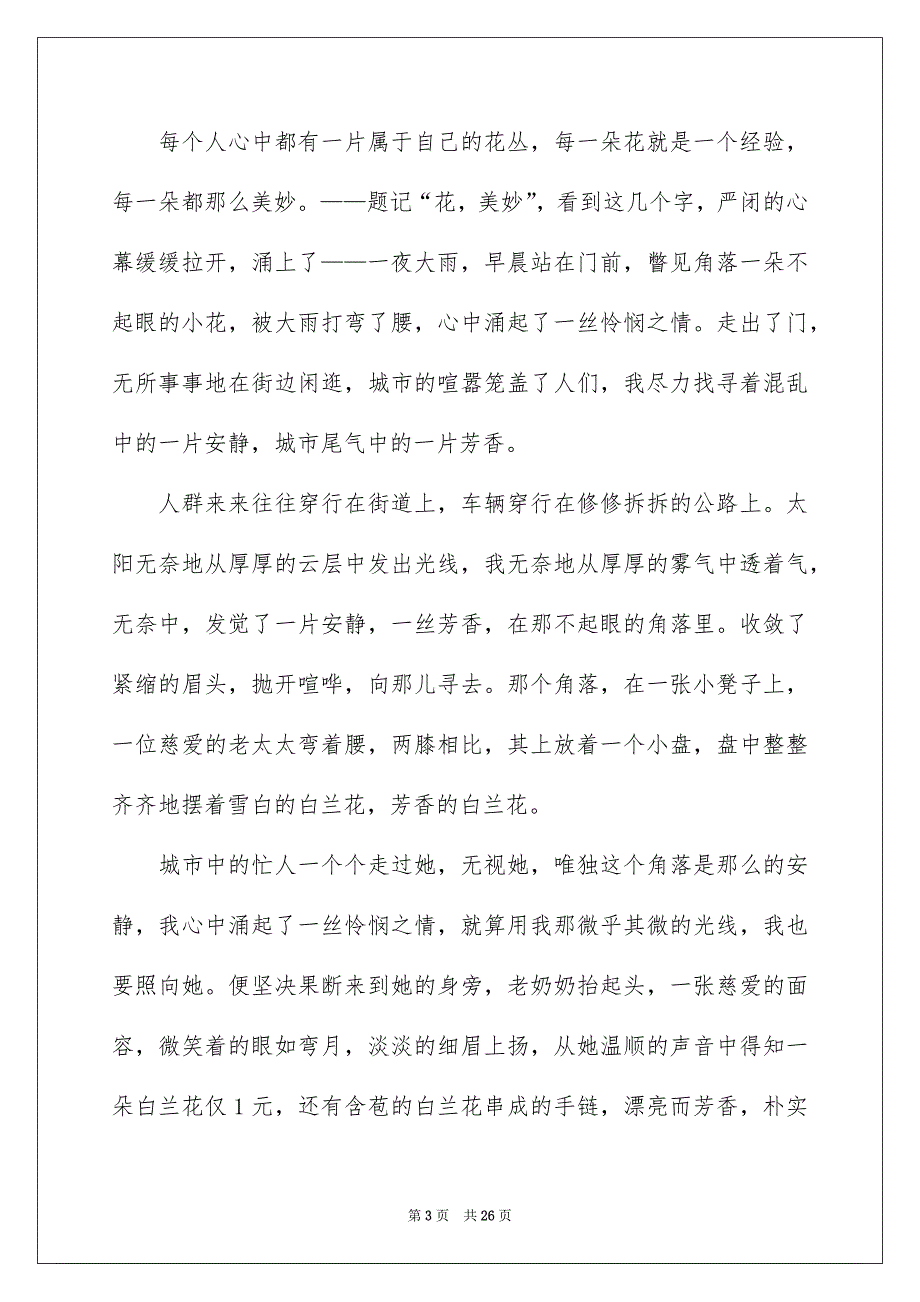 每个人心中都有一片属于自己的花丛，每一朵花就是一个经验，
每一朵都那么美妙。——题记“花，美妙”，看到这几个字，严闭的心
幕缓缓拉开，涌上了——一夜大雨，早晨站在门前，瞥见角落一朵不
起眼的小花，被大雨打弯了腰，心中涌起了一丝怜悯之情。走出了门，
无所事事地在街边闲逛，城市的喧嚣笼盖了人们，我尽力找寻着混乱
中的一片安静，城市尾气中的一片芳香。
人群来来往往穿行在街道上，车辆穿行在修修拆拆的公路上。太
阳无奈地从厚厚的云层中发出光线，我无奈地从厚厚的雾气中透着气，
无奈中，发觉了一片安静，一丝芳香，在那不起眼的角落里。收敛了
紧缩的眉头，抛开喧哗，向那儿寻去。那个角落，在一张小凳子上，
一位慈爱的老太太弯着腰，两膝相比，其上放着一个小盘，盘中整整
齐齐地摆着雪白的白兰花，芳香的白兰花。
城市中的忙人一个个走过她，无视她，唯独这个角落是那么的安
静，我心中涌起了一丝怜悯之情，就算用我那微乎其微的光线，我也
要照向她。便坚决果断来到她的身旁，老奶奶抬起头，一张慈爱的面
容，微笑着的眼如弯月，淡淡的细眉上扬，从她温顺的声音中得知一
朵白兰花仅 1 元，还有含苞的白兰花串成的手链，漂亮而芳香，朴实
第 3 页 共 26 页